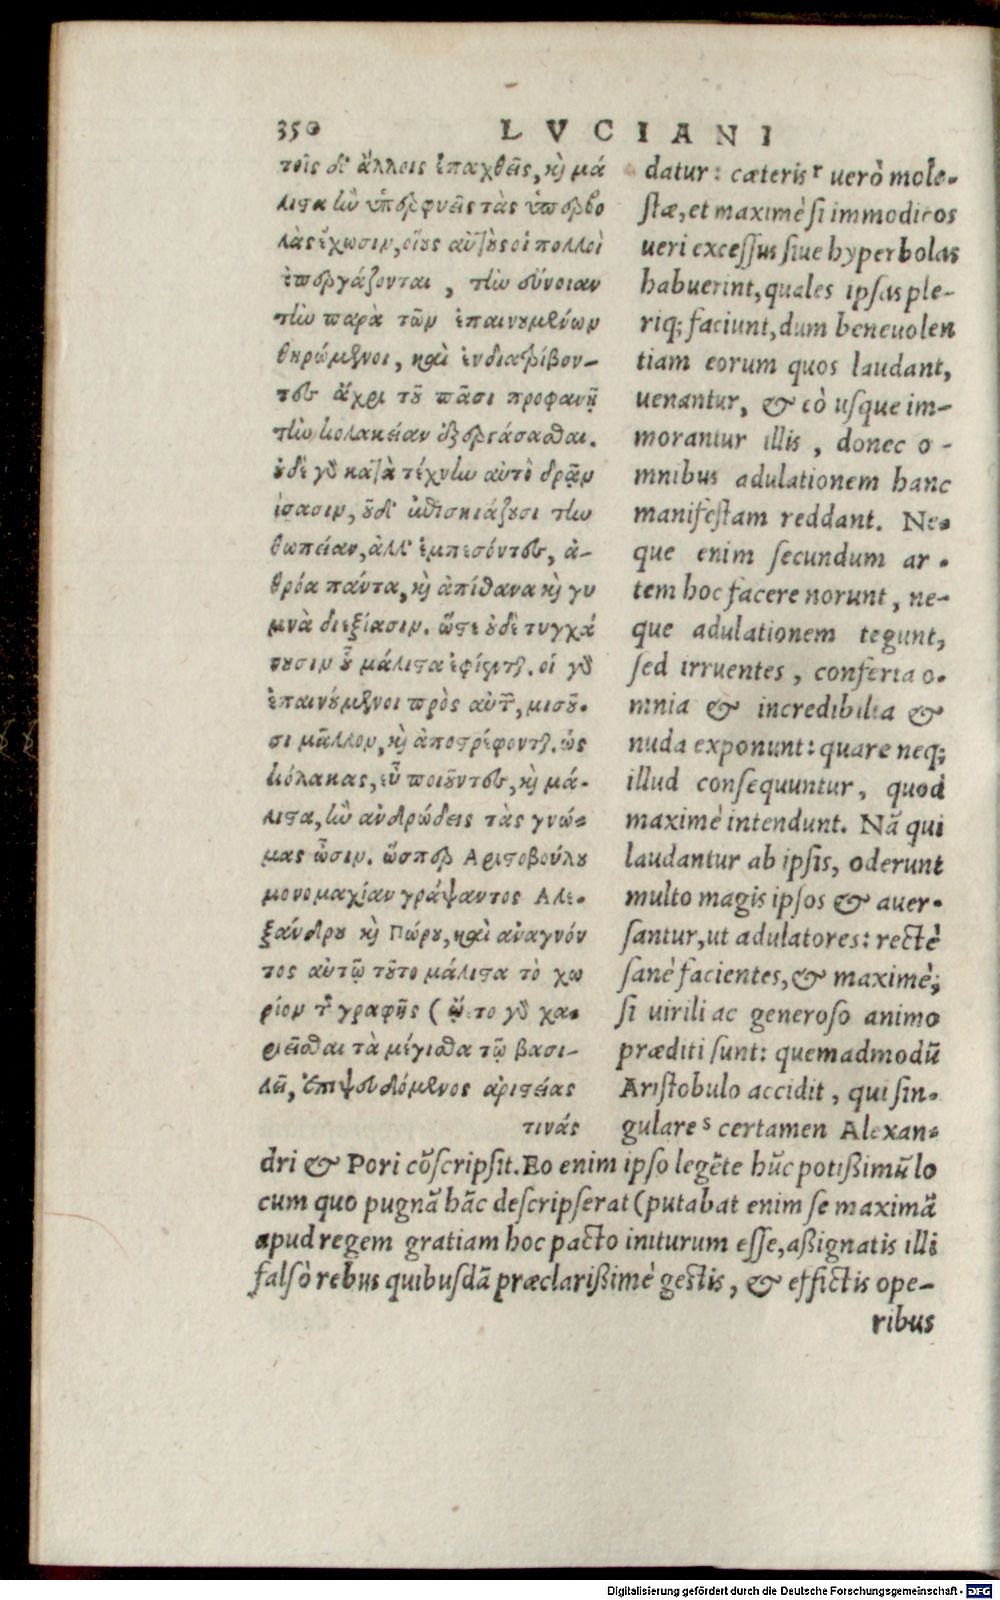 350 LVCIANI
τοῖς δ' ἄλλοις ἐπαχθεῖς, κỳ μά
λιστα ἢν ὑπερφυεῖς τὰς ὑπερβο
λὰς ἔχωσιν, οἵους αὐτοὺς οἱ πολλοὶ
ἐπεργάζονται, τὴν εὔνοιαν
τὴν παρὰ τῶν ἐπαινουμένων
θηρώμενοι, καὶ ἐνδιατρίβον-
τες ἄχρι τοῦ πᾶσι προφανῆ
τὴν κολακείαν ἐξεργάσασθαι.
οὐδὲ γὸ κατὰ τέχνην αὐτὸ δρᾷν
ἴσασιν, οὐδ' ἐπισκιάζουσι τὴν
θωπείαν, ἀλλ' ἐμπεσόντες, ἀ-
θρόα πάντα, κỳ ἀπίθανα κỳ γυ
μνὰ διεξίασιν. ὥστε οὐδὲ τυγχά
νουσιν οὗ μάλιστα ἐφίενται. οἱ γὸ
ἐπαινούμενοι πρὸς αὐτῶν, μισοῦ-
σι μᾶλλον, κỳ ἀποστρέφονται. ὡς
κόλακας, εὖ ποιοῦντες, κỳ μά-
λιστα, ἢν ἀνδρώδεις τὰς γνώ-
μας ὦσιν. ὥσπερ Αριστοβούλου
μονομαχίαν γράψαντος Αλε-
ξάνδρου κỳ Πώρου, καὶ ἀναγνόν
τος αὐτῷ τοῦτο μάλιστα τὸ χω
ρίον τῆς γραφῆς (ᾤετο γὸ χα-
ριεῖσθαι τὰ μέγιστα τῷ βασι-
λεῖ, ἐπιψευδόμενος ἀριστείας
τινάς
datur: cæteris r uerò mole-
stæ, et maximè si immodicos
ueri excessus siue hyperbolas
habuerint, quales ipsas ple-
riq; faciunt, dum beneuolen
tiam eorum quos laudant,
uenantur, & eò usque im-
morantur illis, donec o-
mnibus adulationem hanc
manifestam reddant. Ne-
que enim secundum ar-
tem hoc facere norunt, ne-
que adulationem tegunt,
sed irruentes, conferta o-
mnia & incredibilia &
nuda exponunt: quare neq;
illud consequuntur, quod
maximè intendunt. Nã qui
laudantur ab ipsis, oderunt
multo magis ipsos & auer-
santur, ut adulatores: rectè
sanè facientes, & maximè,
si uirili ac generoso animo
præditi sunt: quemadmodũ
Aristobulo accidit, qui sin-
gulare s certamen Alexan-
dri & Pori cõscripsit. Eo enim ipso legẽte hũc potißimũ lo
cum quo pugnã hãc descripserat (putabat enim se maximã
apud regem gratiam hoc pacto initurum esse, aßignatis illi
falsò rebus quibusdã præclarißimè gestis, & effictis ope-
ribus
Digitalisierung gefördert durch die Deutsche Forschungsgemeinschaft - DFG